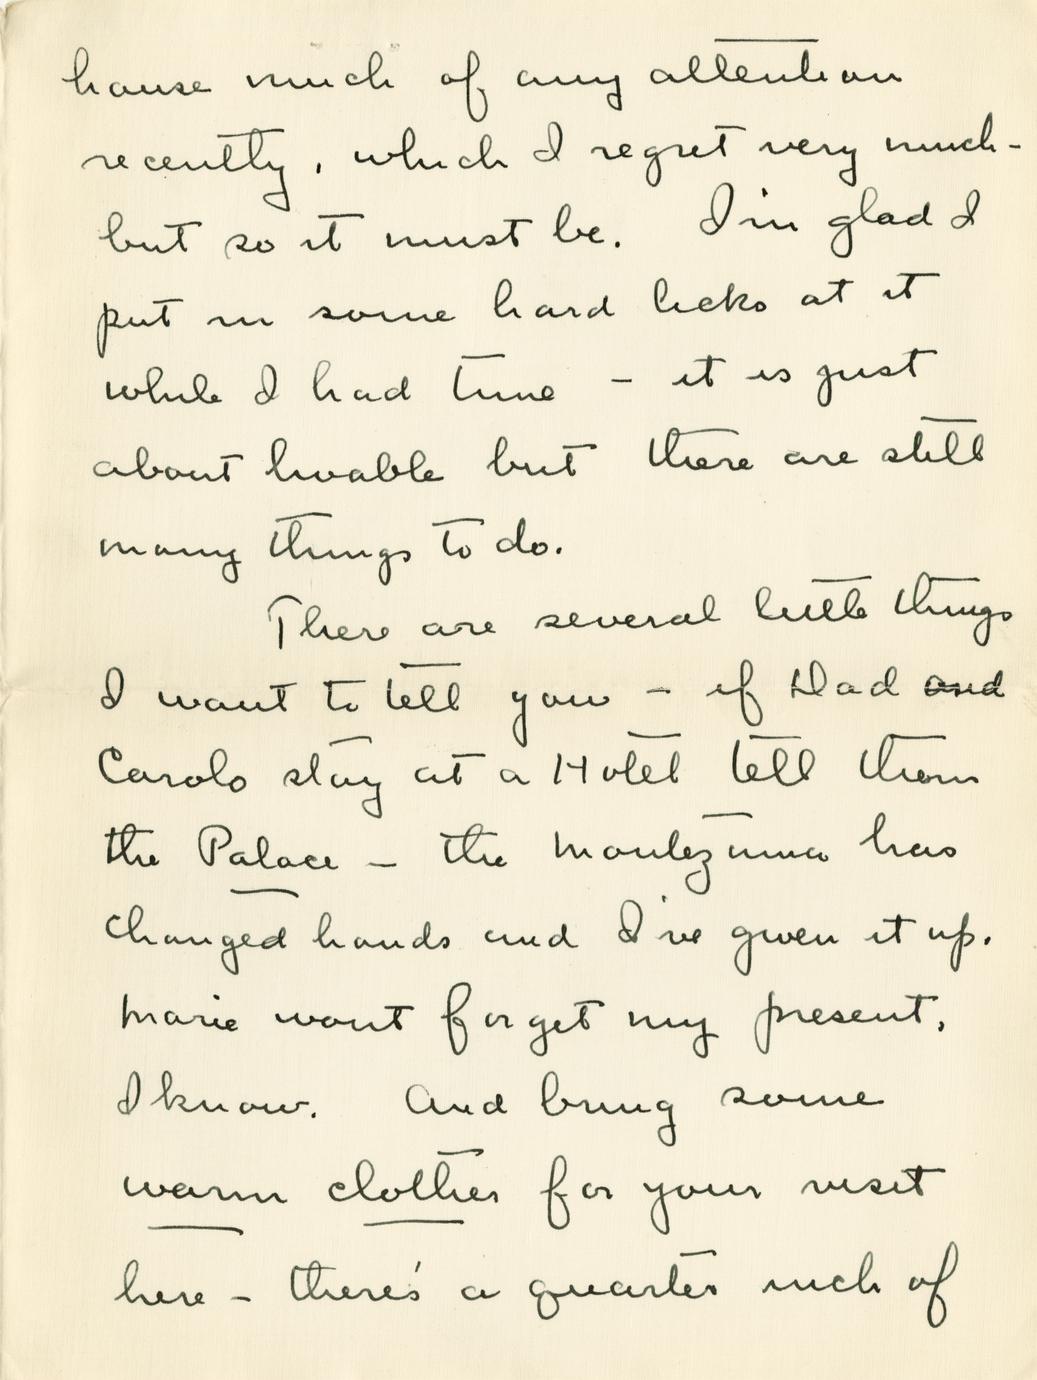 house much of any attention
recently, which I regret very much -
but so it must be. I'm glad I
put in some hard licks at it
while I had time - it is just
about livable but there are still
many things to do.
There are several little things
I want to tell you - if Dad and
Carols stay at a Hotel tell them
the Palace - the Montezuma has
changed hands and I've given it up.
Marie wont forget my present,
I know. And bring some
warm clothes for your visit
here - there's a quarter inch of